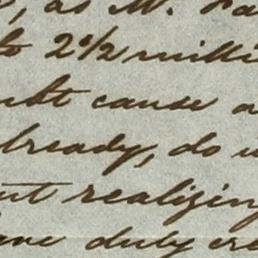 , as M. Pa
to 2½ milli
ust cause a
lready, do
ut realizing
ave duly cre